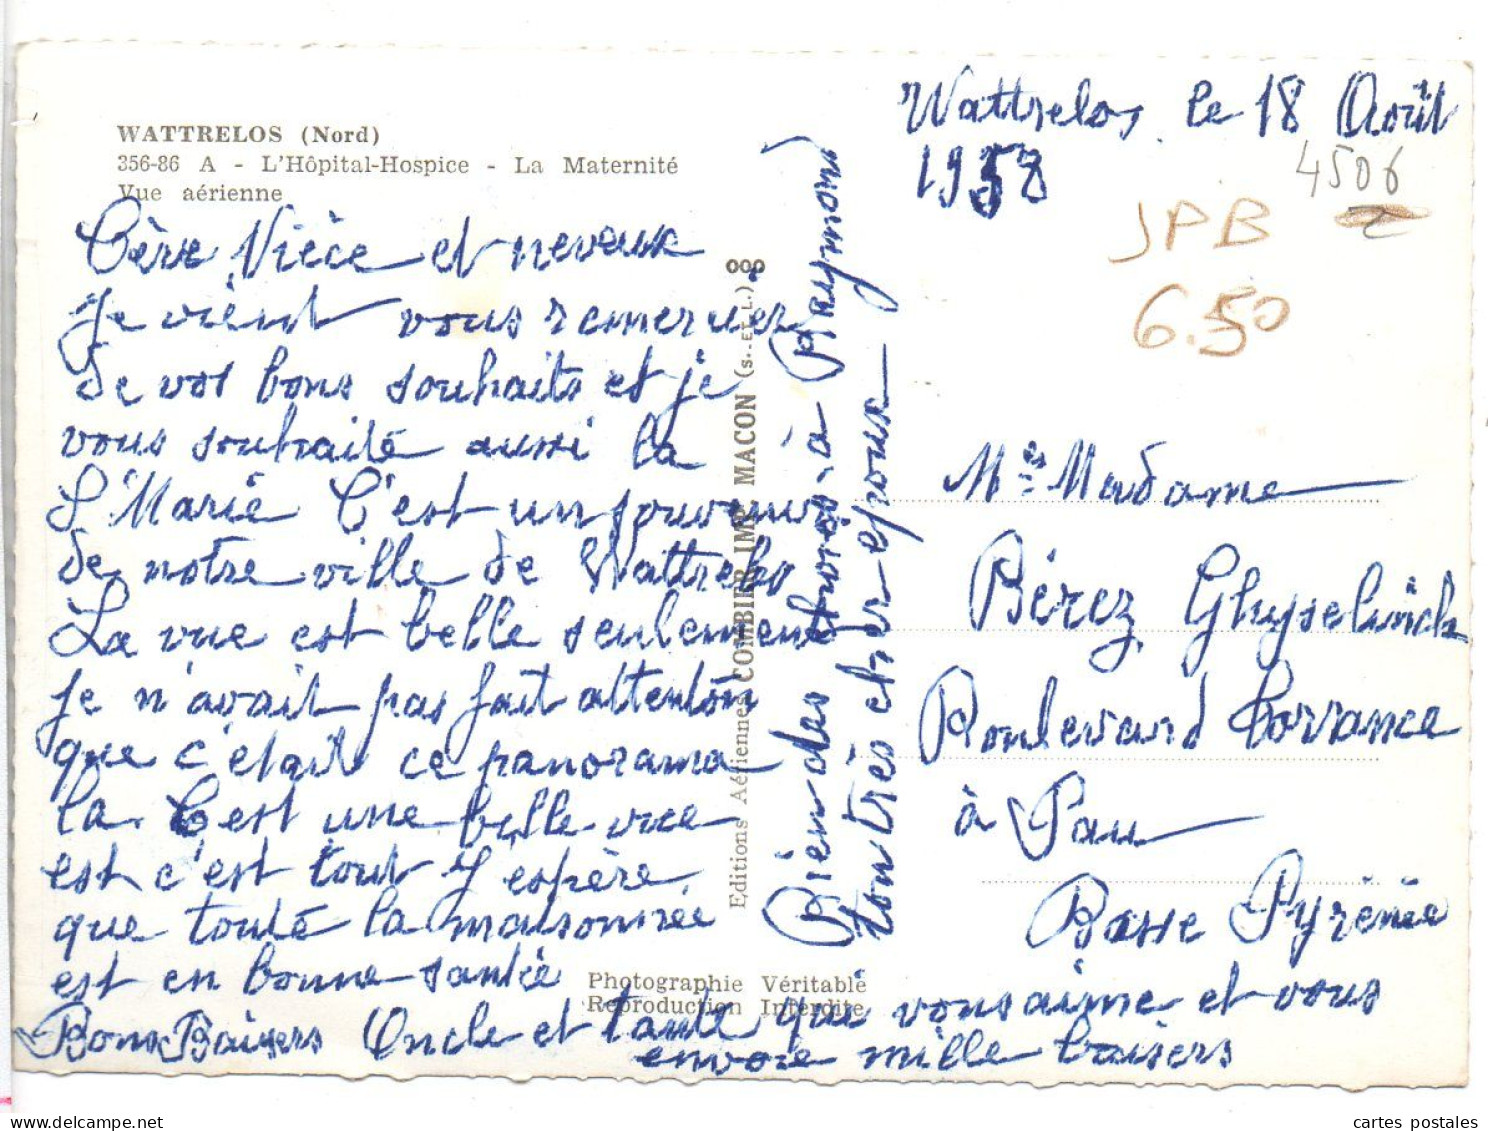 WATTRELOS (Nord)
356-86 A - L'Hôpital-Hospice - La Maternité
Vue aérienne
Cère Nièce et neveux
Je vient vous remercier
de vos bons souhaits et je
vous souhaité aussi la
S Marie C'est un souvenir
de notre ville de Wattrelos
La vue est belle seulement
je n'avait pas fait attention
que c'etait ce panorama
la. C'est une belle vue
est c'est tout J espère
que touté la maisonnée
est en bonne santée
Bons Baisers Oncle et tante qui vous aime et vous
envoie mille baisers
Bien des choses à Raymond
ton très cher epoux
Editions Aériennes COMBIER IMP. MACON (S.-ET-L.)
Photographie Véritable
Reproduction Interdite
Wattrelos le 18 Août
1958
4506
JPB
6.50
Mes Madame
Bérez Ghyselinck
Boulevard Corrance
à Pau
Basse Pyrénée
cartes postales